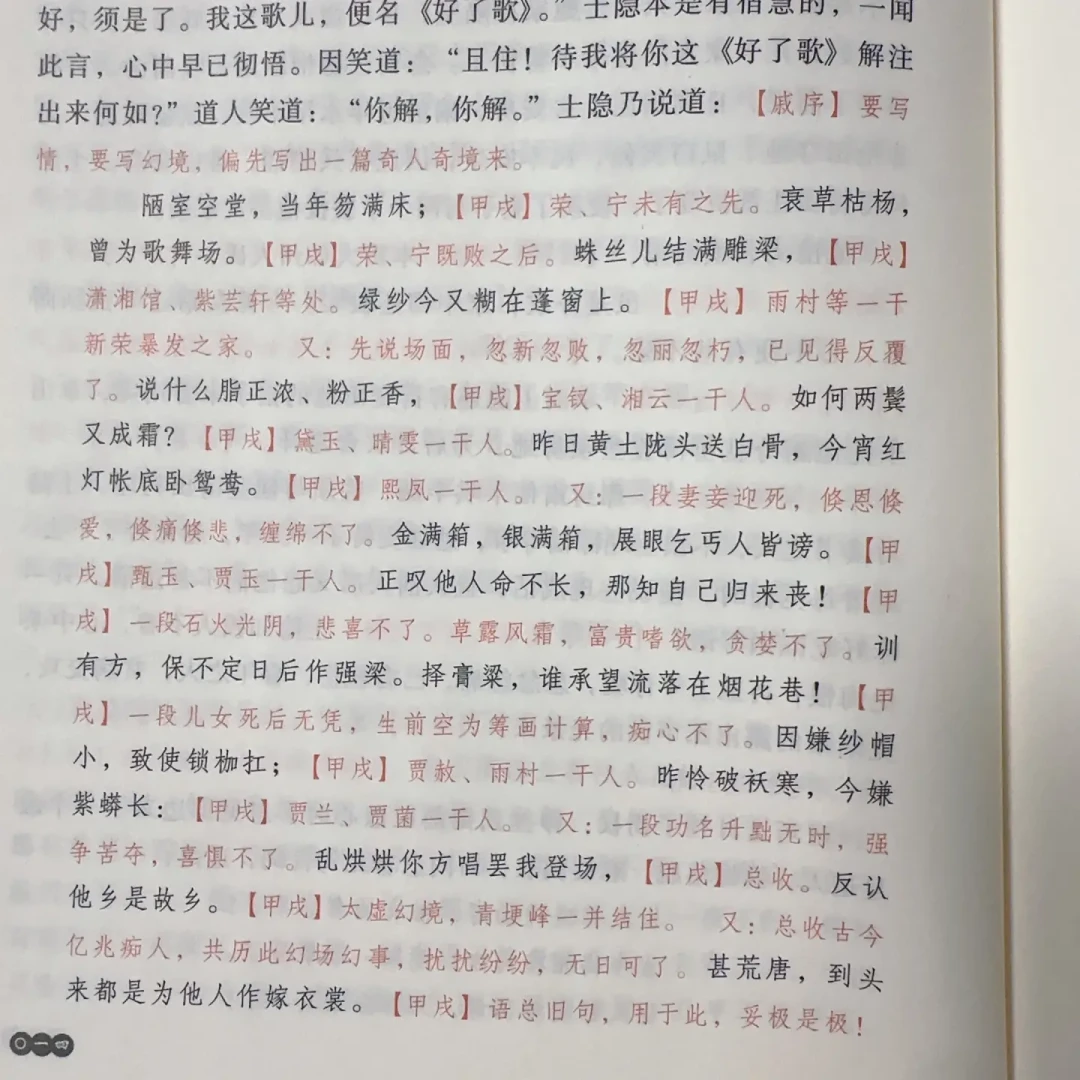 好，须是了。我这歌儿，便名《好了歌》。”士隐本是有宿慧的，一闻
此言，心中早已彻悟。因笑道：“且住！待我将你这《好了歌》解注
出来何如？”道人笑道：“你解，你解。”士隐乃说道：【戚序】要写
情，要写幻境，偏先写出一篇奇人奇境来。
陋室空堂，当年笏满床；【甲戌】荣、宁未有之先。衰草枯杨，
曾为歌舞场。【甲戌】荣、宁既败之后。蛛丝儿结满雕梁，【甲戌】
潇湘馆、紫芸轩等处。绿纱今又糊在蓬窗上。【甲戌】雨村等一干
新荣暴发之家。 又：先说场面，忽新忽败，忽丽忽朽，已见得反覆
了。说什么脂正浓、粉正香，【甲戌】宝钗、湘云一干人。如何两鬓
又成霜？【甲戌】黛玉、晴雯一干人。昨日黄土陇头送白骨，今宵红
灯帐底卧鸳鸯。【甲戌】熙凤一干人。 又：一段妻妾迎死，倏恩倏
爱，倏痛倏悲，缠绵不了。金满箱，银满箱，展眼乞丐人皆谤。【甲
戌】甄玉、贾玉一干人。正叹他人命不长，那知自己归来丧！【甲
戌】一段石火光阴，悲喜不了。草露风霜，富贵嗜欲，贪婪不了。训
有方，保不定日后作强梁。择膏粱，谁承望流落在烟花巷！【甲
戌】一段儿女死后无凭，生前空为筹画计算，痴心不了。因嫌纱帽
小，致使锁枷扛；【甲戌】贾赦、雨村一干人。昨怜破袄寒，今嫌
紫蟒长：【甲戌】贾兰、贾菌一干人。 又：一段功名升黜无时，强
争苦夺，喜惧不了。乱烘烘你方唱罢我登场，【甲戌】总收。反认
他乡是故乡。【甲戌】太虚幻境，青埂峰一并结住。 又：总收古今
亿兆痴人，共历此幻场幻事，扰扰纷纷，无日可了。甚荒唐，到头
来都是为他人作嫁衣裳。【甲戌】语总旧句，用于此，妥极是极！
〇一四